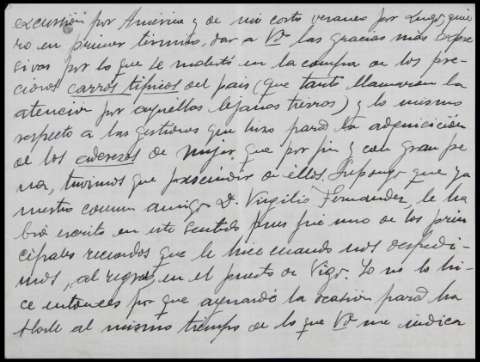 excursión por América y de mi corto veraneo por Lugo, quie
ro en primer término, dar a Vd las gracias más expre
sivas por lo que se molestó en la compra de los pre
ciosos carros típicos del país (que tanto llamarían la
atención por aquellas lejanas tierras) y lo mismo
respecto a las gestiones que hizo para la adquisición
de los aderezos de mujer que por fin y con gran pe
na, tuvimos que prescindir de ellos. Supongo que ya
nuestro común amigo D. Virgilio Fernandez, le ha
brá escrito en este sentido pues fué uno de los prin
cipales recuerdos que le hice cuando nos despedi
mos, al regreso, en el puerto de Vigo. Yo no lo hi
ce entonces por que aguardé la ocasión para ha
blarle al mismo tiempo de lo que Vd me indica